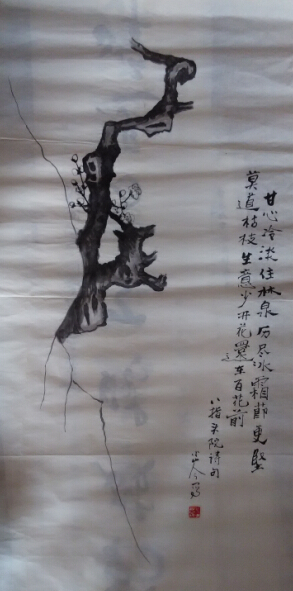 甘心冷淡住林泉历尽冰霜節更堅
莫道枯枝生意少开花還在百花前
八指头陀詩句